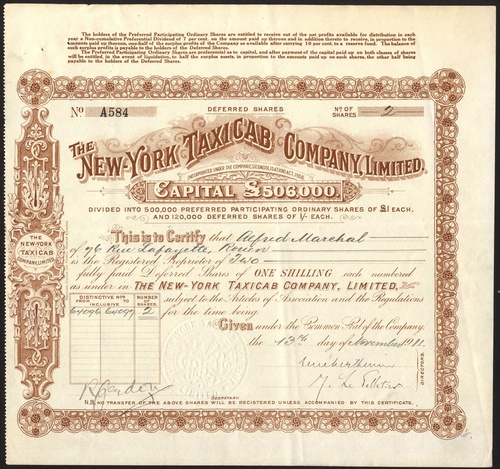 The holders of the Preferred Participating Ordinary Shares are entitled to receive out of the net profits available for distribution in each
year a Non-cumulative Preferential Dividend of 7 per cent. on the amount paid up thereon and in addition thereto to receive, in proportion to the
amounts paid up thereon, one-half of the surplus profits of the Company as available after carrying 10 per cent. to a reserve fund. The balance of
such surplus profits is payable to the holders of the Deferred Shares.
The Preferred Participating Ordinary Shares are preferential as to capital, and after payment of the capital paid up on both classes of shares
will be entitled, in the event of liquidation, to half the surplus assets, in proportion to the amounts paid up on such shares, the other half being
payable to the holders of the Deferred Shares.
DEFERRED SHARES
No A584
No OF SHARES 2
THE NEW-YORK TAXICAB COMPANY, LIMITED.
INCORPORATED UNDER THE COMPANIES (CONSOLIDATION) ACT, 1908.
CAPITAL £506,000.
DIVIDED INTO 500,000 PREFERRED PARTICIPATING ORDINARY SHARES OF £1 EACH.
AND 120,000 DEFERRED SHARES OF 1/- EACH.
This is to Certify that Alfred Marchal
of 96 Rue Lafayette Rouen
is the Registered Proprietor of Two
fully paid Deferred Shares of ONE SHILLING each numbered
as under in THE NEW-YORK TAXICAB COMPANY, LIMITED,
subject to the Articles of Association and the Regulations
for the time being.
DISTINCTIVE Nos FROM INCLUSIVE
NUMBER OF SHARES
64096 64097 2
Given under the Common Seal of the Company,
the 13th day of November 1911.
DIRECTORS.
SECRETARY.
N.B. NO TRANSFER OF THE ABOVE SHARES WILL BE REGISTERED UNLESS ACCOMPANIED BY THIS CERTIFICATE.
THE NEW-YORK TAXICAB COMPANY, LIMITED.